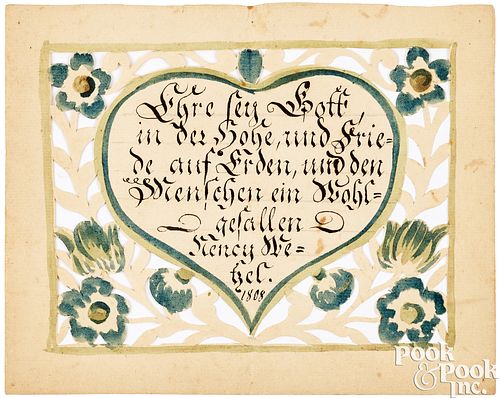 Ehre sey Gott,
in der Höhe, und Frie=
de auf Erden, und den
Menschen ein Wohl=
gefallen
Nency We=
tzel.
1808
Pook
& Pook
Inc.